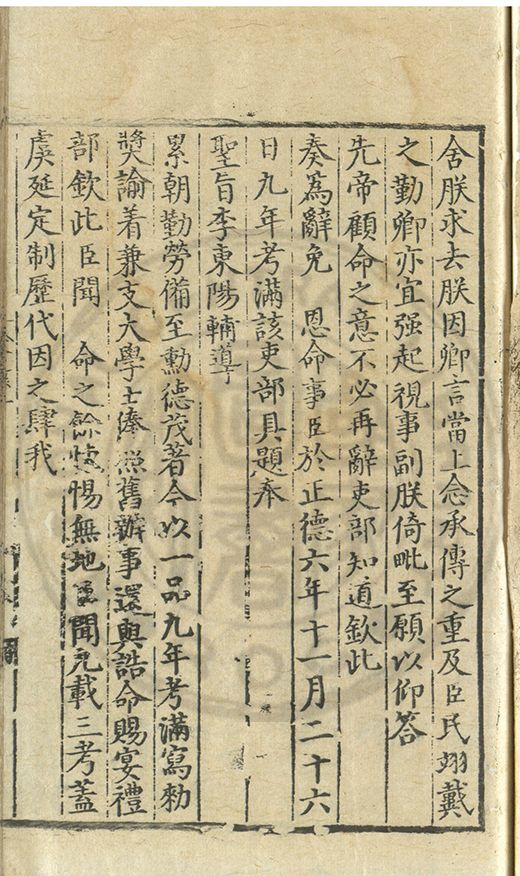 舍朕求去朕因卿言當上念承傳之重及臣民翊戴
之勤卿亦宜强起視事副朕倚毗至願以仰答
先帝顧命之意不必再辭吏部知道欽此
奏為辭免　恩命事臣於正德六年十一月二十六
日九年考滿該吏部具題奉
聖旨李東陽輔導
累朝勤勞備至勳德茂著今以一品九年考滿寫勑
奬諭着兼支大學士俸照舊辦事還與誥命賜宴禮
部欽此臣聞　命之餘惕無地臣聞九載三考蓋
虞延定制歷代因之肆我